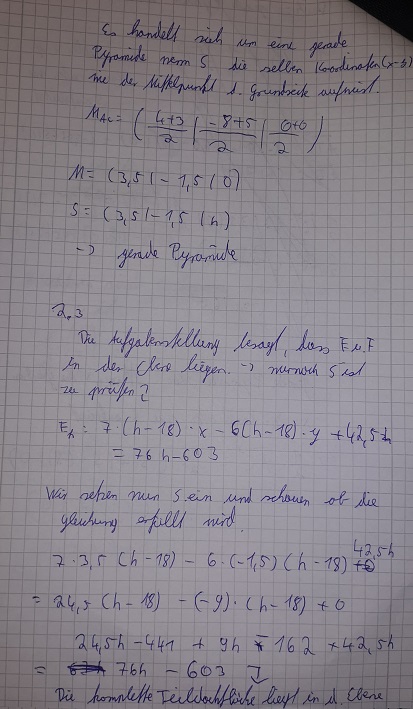 Es handelt sich um eine gerade
Pyramide wenn S die selben Koordinaten (x-y)
wie der Mittelpunkt d. Grundseite aufweist.
M_AC = ( 4+3/2 | -8+5/2 | 0+0/2 )
M = (3,5 | -1,5 | 0)
S = (3,5 | -1,5 | h)
-> gerade Pyramide
2.3
Die Aufgabenstellung besagt, dass E u. F
in der Ebene liegen. -> nurnoch S ist
zu prüfen?
E_h: 7 · (h-18) · x - 6(h-18) · y + 42,5z
= 76h - 603
Wir setzen nun S ein und schauen ob die
gleichung erfüllt wird.
7 · 3,5 (h-18) - 6 · (-1,5) (h-18) 42,5h
= 24,5 (h-18) - (-9) · (h-18) + 0
24,5h - 441 + 9h - 162 + 42,5h
= 76h - 603
Die komplette Teildachfläche liegt in d. Ebene